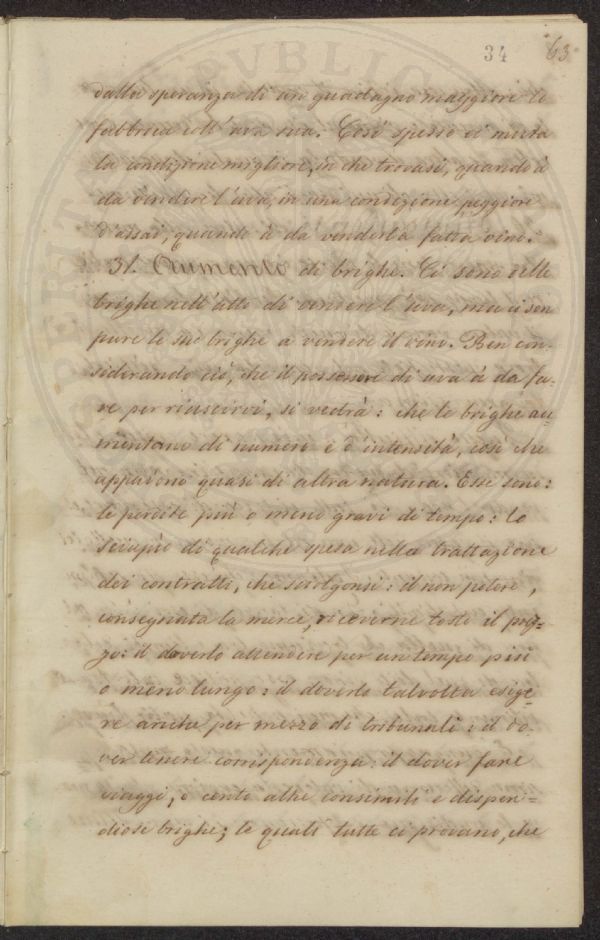 34 63
dalla speranza di un guadagno maggiore lo
fabbrica coll' uva sua. Così spesso ei muta
la condizione migliore, in che trovasi, quando à
da vendere l'uva, in una condizione peggiore
d'assai, quando à da venderla fatta vino.
31. Aumento di brighe. Ci sono delle
brighe nell' atto di vendere l'uva, ma ci son
pure le sue brighe a vendere il vino. Ben con-
siderando ciò, che il possessore di uva à da fa-
re per riuscirvi, si vedrà: che le brighe au-
mentano di numero e d'intensità, così che
appaiono quasi di altra natura. Esse sono:
le perdite più o meno gravi di tempo: lo
sciupio di qualche spesa nella trattazione
dei contratti, che sciolgonsi: il non potere,
consegnata la merce, riceverne tosto il prez-
zo: il doverlo attendere per un tempo più
o meno lungo: il doverlo talvolta esige-
re anche per mezzo di tribunali: il do-
ver tenere corrispondenza: il dover fare
viaggi, e cento altre consimili e dispen-
diose brighe; le quali tutte ci provano, che